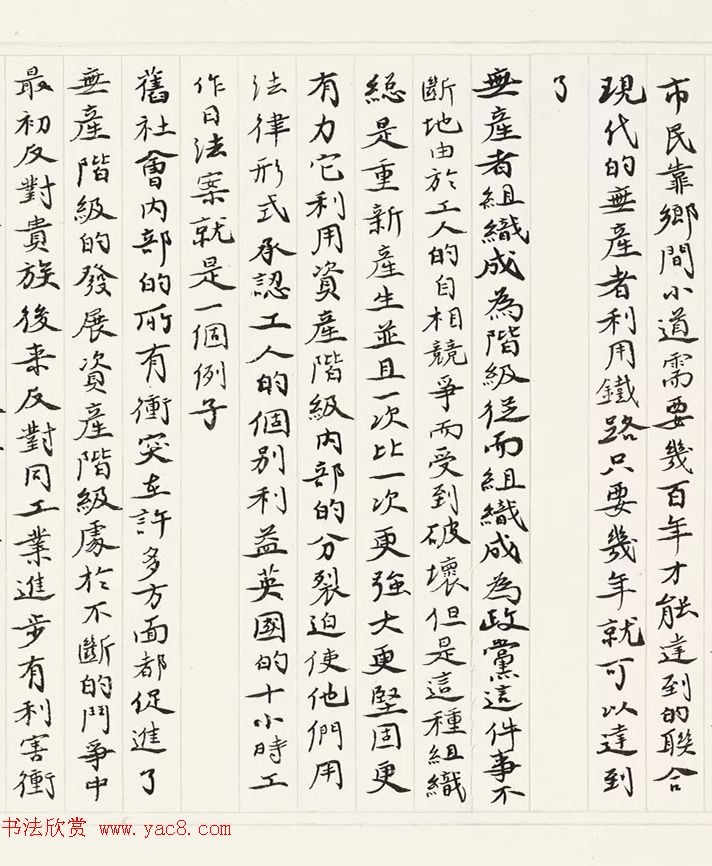 市民靠鄉間小道需要幾百年才能達到的聯合
現代的無產者利用鐵路只要幾年就可以達到
了
無產者組織成為階級從而組織成為政黨這件事不
斷地由於工人的自相競爭而受到破壞但是這種組織
總是重新產生並且一次比一次更強大更堅固更
有力它利用資產階級內部的分裂迫使他們用
法律形式承認工人的個別利益英國的十小時工
作日法案就是一個例子
舊社會內部的所有衝突在許多方面都促進了
無產階級的發展資產階級處於不斷的鬥爭中
最初反對貴族後來反對同工業進步有利害衝
书法欣赏 www.yac8.com